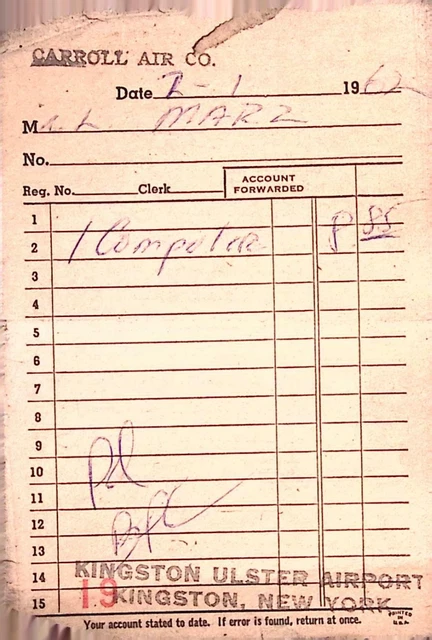 CARROLL AIR CO.
Date 2-1 1962
M r. L. MARZ
No.
Reg. No. Clerk ACCOUNT FORWARDED
1
2 1 Computer 8 85
3
4
5
6
7
8
9
10 Pd
11
12
13
14 KINGSTON ULSTER AIRPORT
15 19 KINGSTON, NEW YORK
PRINTED IN U.S.A.
Your account stated to date. If error is found, return at once.